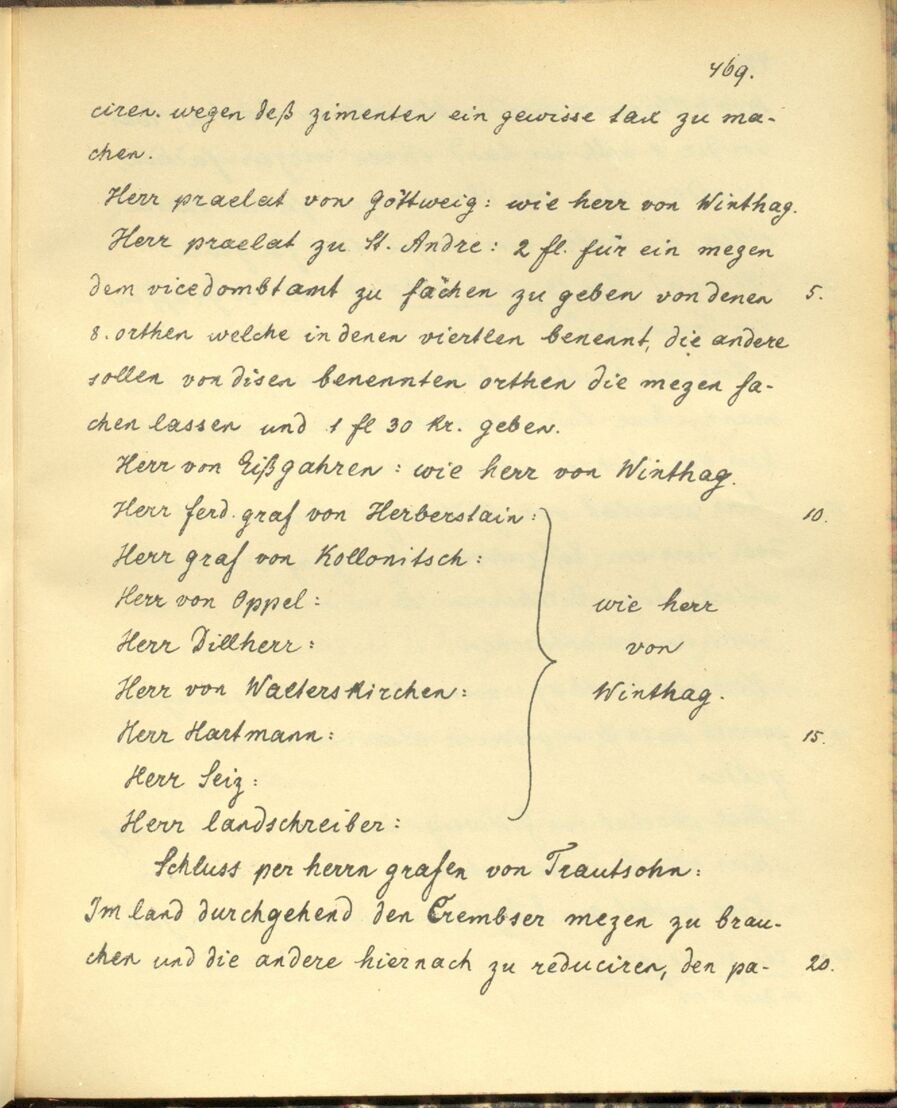 469.
ciren. wegen deß zimenten ein gewisse tax zu ma-
chen.
Herr praelat von Göttweig: wie herr von Winthag.
Herr praelat zu St. Andre: 2 fl. für ein mezen
dem vicedombtamt zu fächen zu geben von denen 5.
8. orthen welche in denen viertlen benennt, die andere
sollen von disen benennten orthen die mezen fä-
chen lassen und 1 fl 30 Kr. geben.
Herr von Eißgahren: wie herr von Winthag.
Herr ferd. graf von Herberstain: 10.
Herr graf von Kollonitsch:
Herr von Oppel: wie herr
Herr Dillherr: von
Herr von Walterskirchen: Winthag.
Herr Hartmann: 15.
Herr Seiz:
Herr landschreiber:
Schluss per herrn grafen von Trautsohn:
Im land durchgehend den Crembser mezen zu brau-
chen und die andere hiernach zu reduciren, den pa- 20.